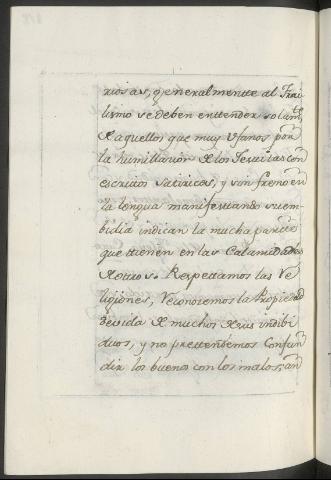 riosas, generalmente al Frai
lismo se deben enttender solamte
de aquellos que muy Ufanos por
la humillacion de los Jesuitas con
escritos satiricos, y sin freno en
la lengua manifestando su em
bidia indican la mucha parte
que ttienen en las Calamidades
de otros. Respettamos las Re
ligiones, Reconozemos la Propiedad
devida de muchos de sus indibi
duos, y no prettendemos Confun
dir los buenos con los malos; an